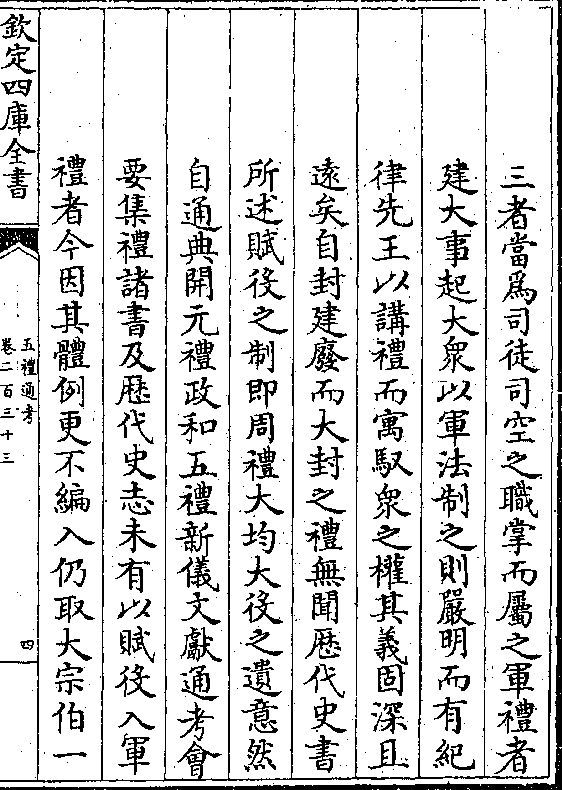 三者當爲司徒司空之職掌而屬之軍禮者
建大事起大衆以軍法制之則嚴明而有紀
律先王以講禮而寓馭衆之權其義固深且
遠矣自封建廢而大封之禮無聞歴代史書
所述賦役之制即周禮大均大役之遺意然
自通典開元禮政和五禮新儀文獻通考會
要集禮諸書及歴代史志未有以賦役入軍
禮者今因其體例更不編入仍取大宗伯一
欽定四庫全書
五禮通考
卷二百三十三
四